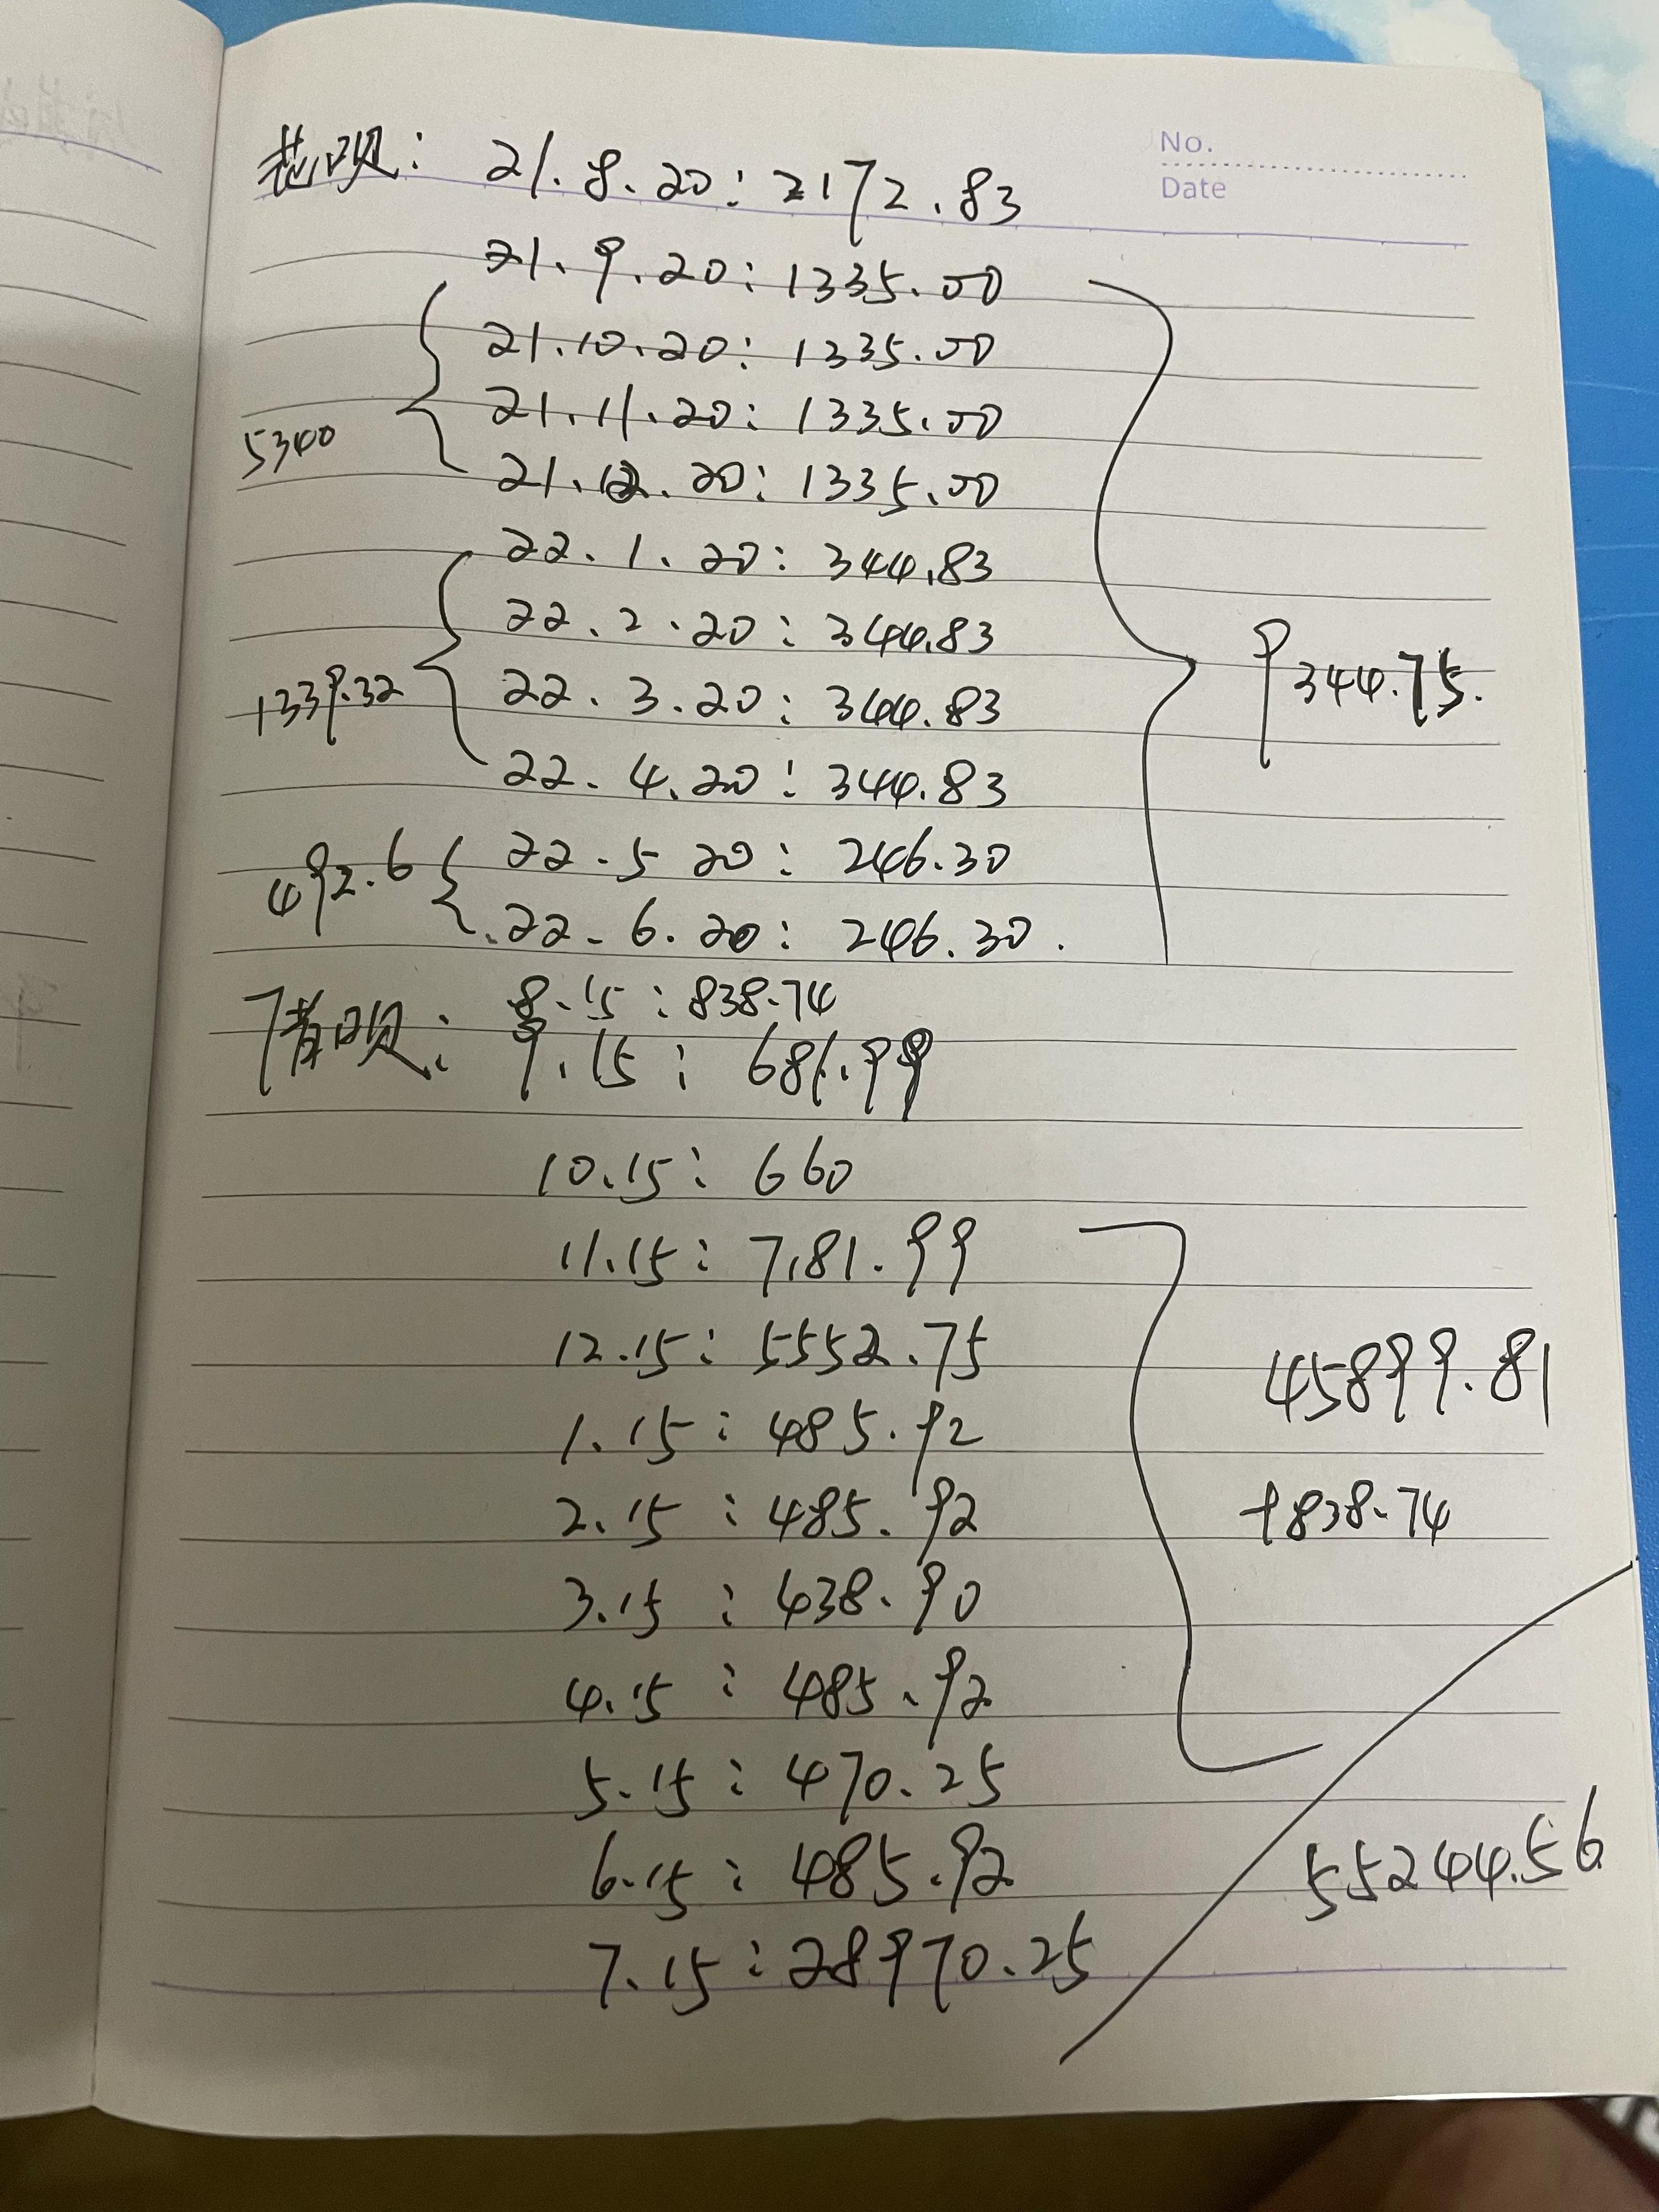 No.
Date
花呗: 21.8.20: 2172.83
21.9.20: 1335.00
21.10.20: 1335.00
21.11.20: 1335.00
5340
21.12.20: 1335.00
22.1.20: 344.83
22.2.20: 344.83
1339.32 22.3.20: 344.83
9344.75.
22.4.20: 344.83
492.6 22.5 20: 246.30
22.6.20: 246.30.
8.15: 838.74
借呗: 9.15: 681.99
10.15: 660
11.15: 7181.99
12.15: 5552.75
45899.81
1.15: 485.92
2.15: 485.92
+838.74
3.15: 438.90
4.15: 485.92
5.15: 470.25
6.15: 485.92
55244.56
7.15: 28970.25